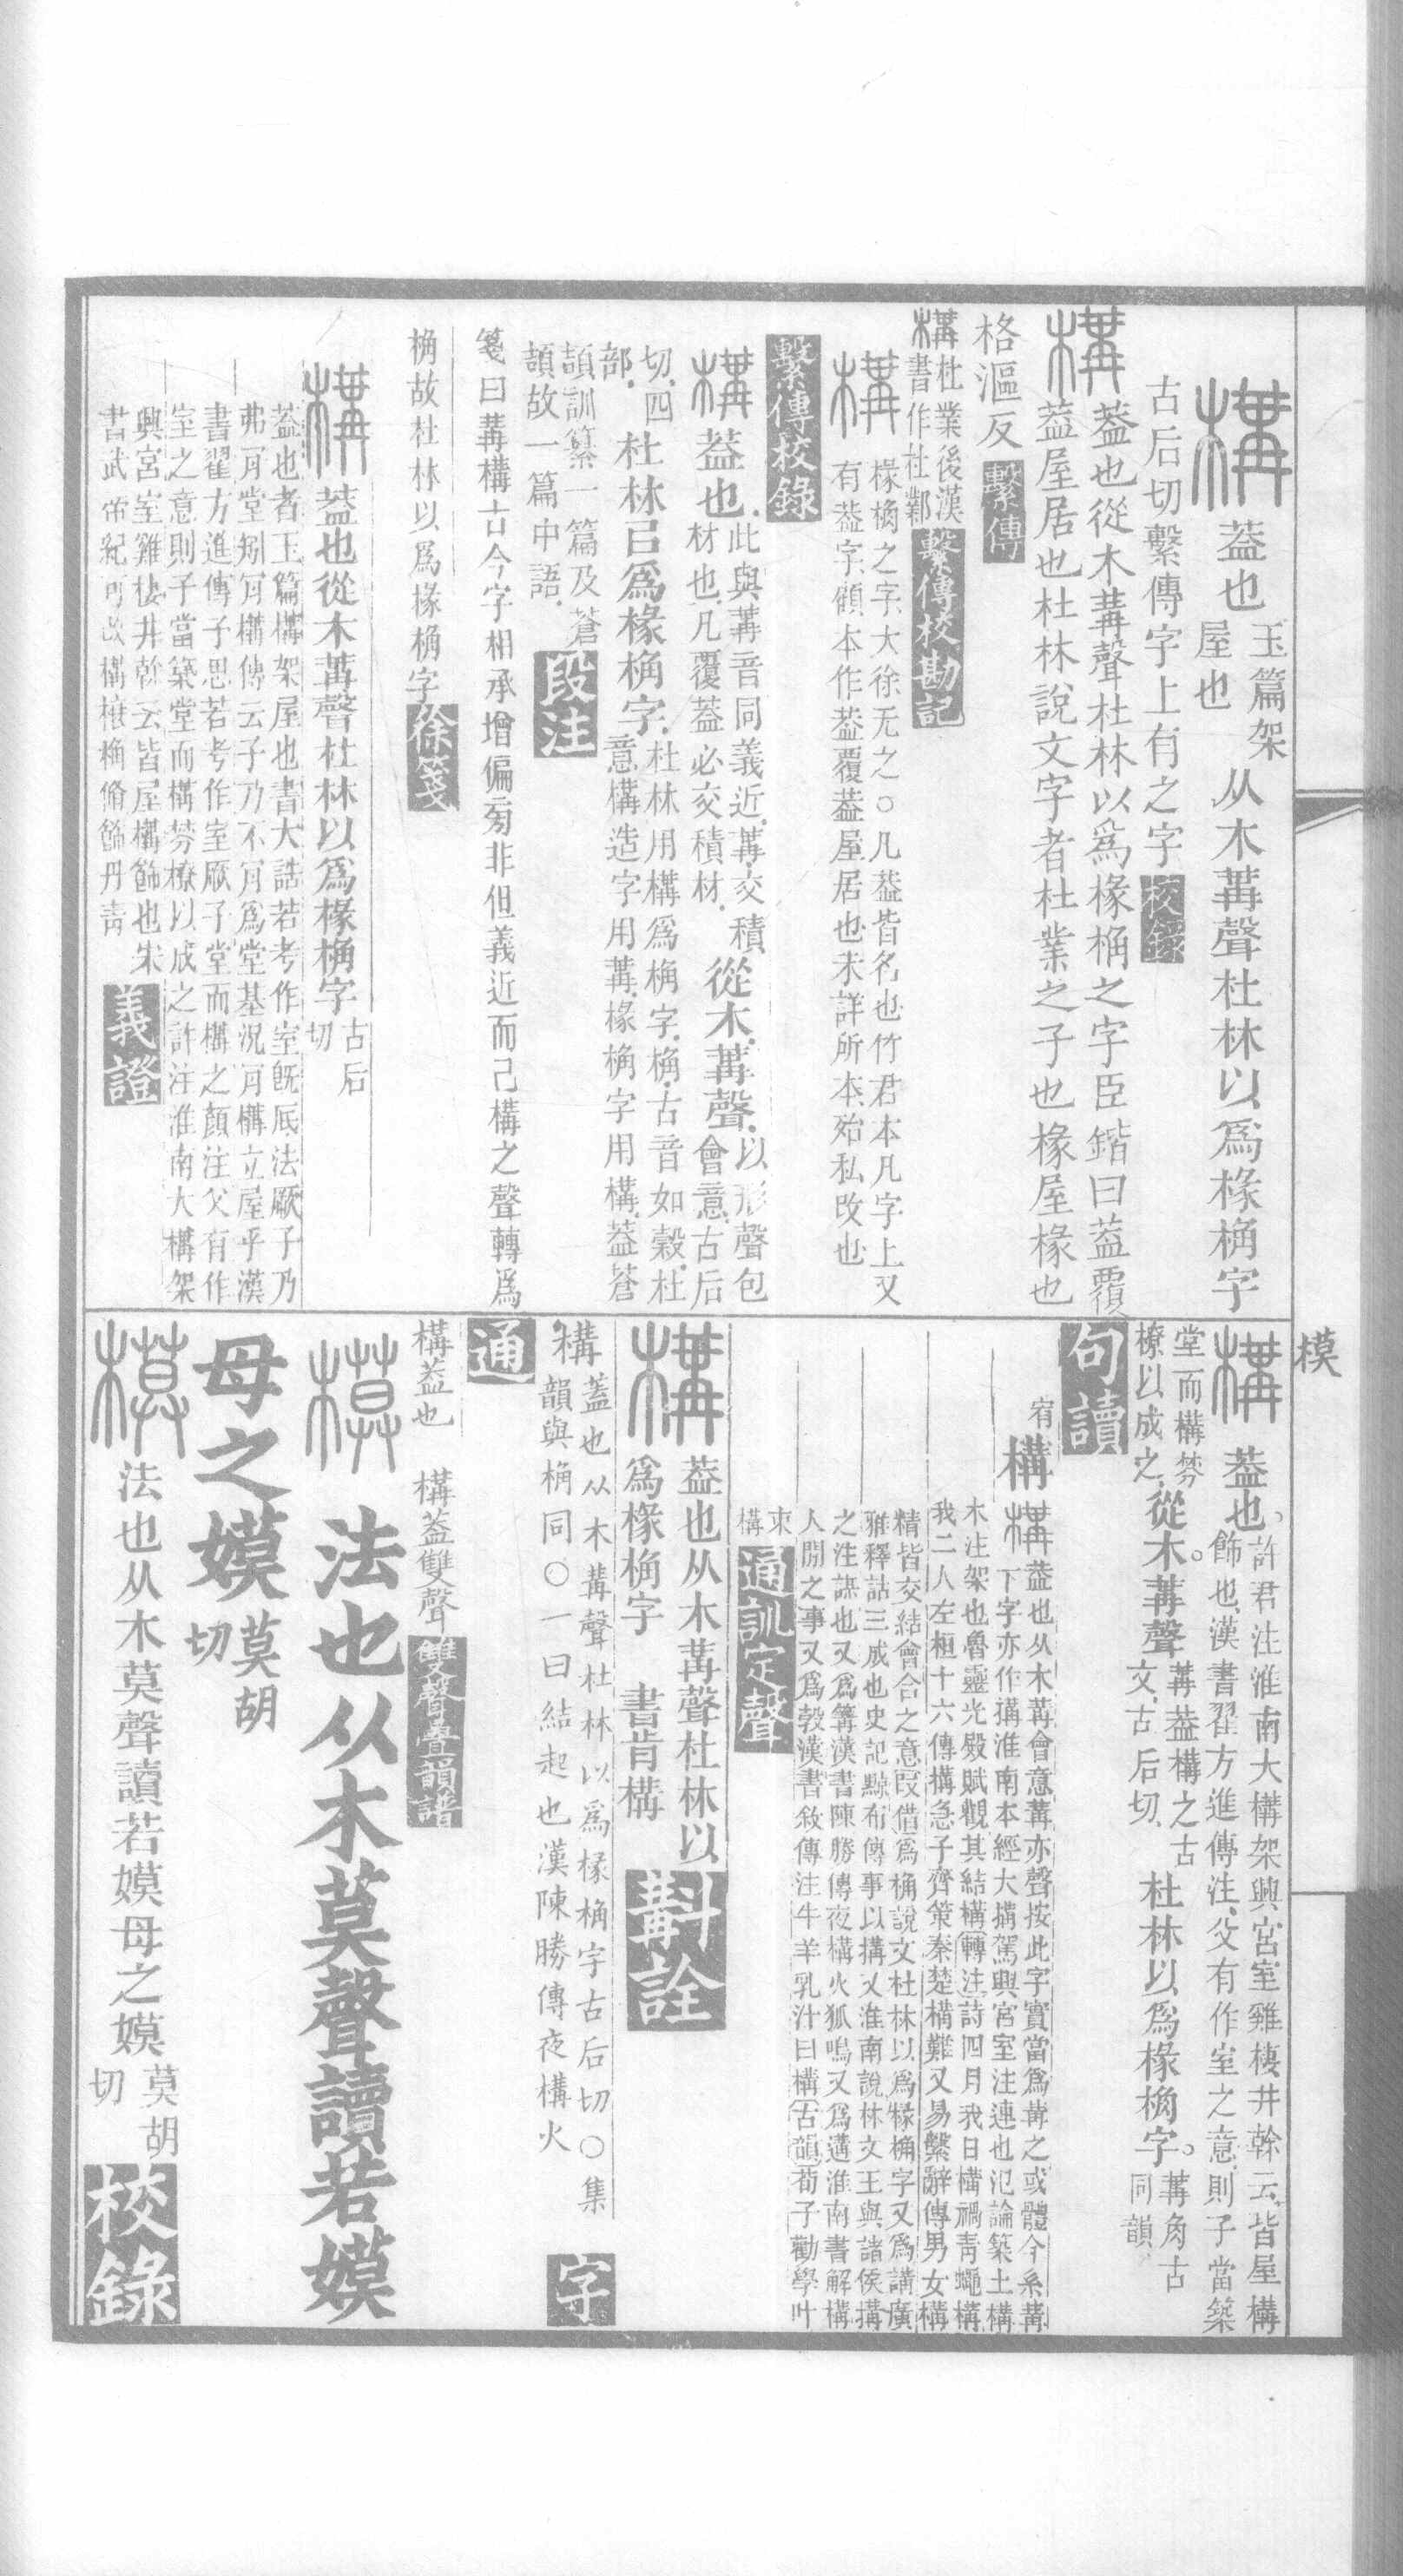 構 葢也 玉篇架屋也 从木冓聲杜林以爲椽桷字
古后切繫傳字上有之字 校錄
構 葢也從木冓聲杜林以爲椽桷之字臣鍇曰葢覆
葢屋居也杜林說文字者杜業之子也椽屋椽也
格漚反 繫傳
構 杜業後漢書作杜鄴 繫傳校勘記
構 椽桷之字大徐无之○凡葢皆名也竹君本凡字上又
有葢字顧本作葢覆葢屋居也未詳所本殆私改也
繫傳校錄
構 葢也 此與冓音同義近冓交積材也凡覆葢必交積材 從木冓聲 以形聲包會意古后
切四部 杜林㠯爲椽桷字 杜林用構爲桷字桷古音如穀杜意構造字用冓椽桷字用構葢蒼
頡訓纂一篇及蒼頡故一篇中語 段注
箋曰冓構古今字相承增偏旁非但義近而已構之聲轉爲
桷故杜林以爲椽桷字 徐箋
構 葢也從木冓聲杜林以爲椽桷字 古后切
葢也者玉篇構架屋也書大誥若考作室旣厎法厥子乃
弗肎堂矧肎構傳云子乃不肎爲堂基況肎構立屋乎漢
書翟方進傳子思若考作室厥子堂而構之顏注父有作
室之意則子當築堂而構棼橑以成之許注淮南大構架
興宮室雞棲井幹云皆屋構飾也宋
書武帝紀可改構榱桷脩飾丹靑 義證
模
構 葢也 許君注淮南大構架興宮室雞棲井幹云皆屋構飾也漢書翟方進傳注父有作室之意則子當築
堂而構棼橑以成之 從木冓聲 冓葢構之古文古后切 杜林以爲椽桷字 冓角古同韻
句讀
宥 構 構 葢也从木冓會意冓亦聲按此字實當爲冓之或體今系冓
下字亦作搆淮南本經大搆駕興宮室注連也氾論築土構
木注架也魯靈光殿賦觀其結構 轉注 詩四月我日構禍靑蠅構
我二人左桓十六傳搆急子齊策秦楚構難又易繫辭傳男女構
精皆交結會合之意 叚借 爲桷說文杜林以爲椽桷字又爲講廣
雅釋詁三成也史記黥布傳事以搆又淮南說林文王與諸侯搆
之注謀也又爲篝漢書陳勝傳夜構火狐鳴又爲遘淮南書解構
人閒之事又爲㝅漢書敘傳注牛羊乳汁曰構 古韻 荀子勸學叶
束構 通訓定聲
構 葢也从木冓聲杜林以
爲椽桷字 書肯構 斠詮
構 蓋也从木冓聲杜林以爲椽桷字古后切○集
韻與桷同○一曰結起也漢陳勝傳夜構火 字
通
構葢也 構葢雙聲 雙聲疊韻譜
模 法也从木莫聲讀若嫫
母之嫫 莫胡切
模 法也从木莫聲讀若嫫母之嫫 莫胡切 校錄